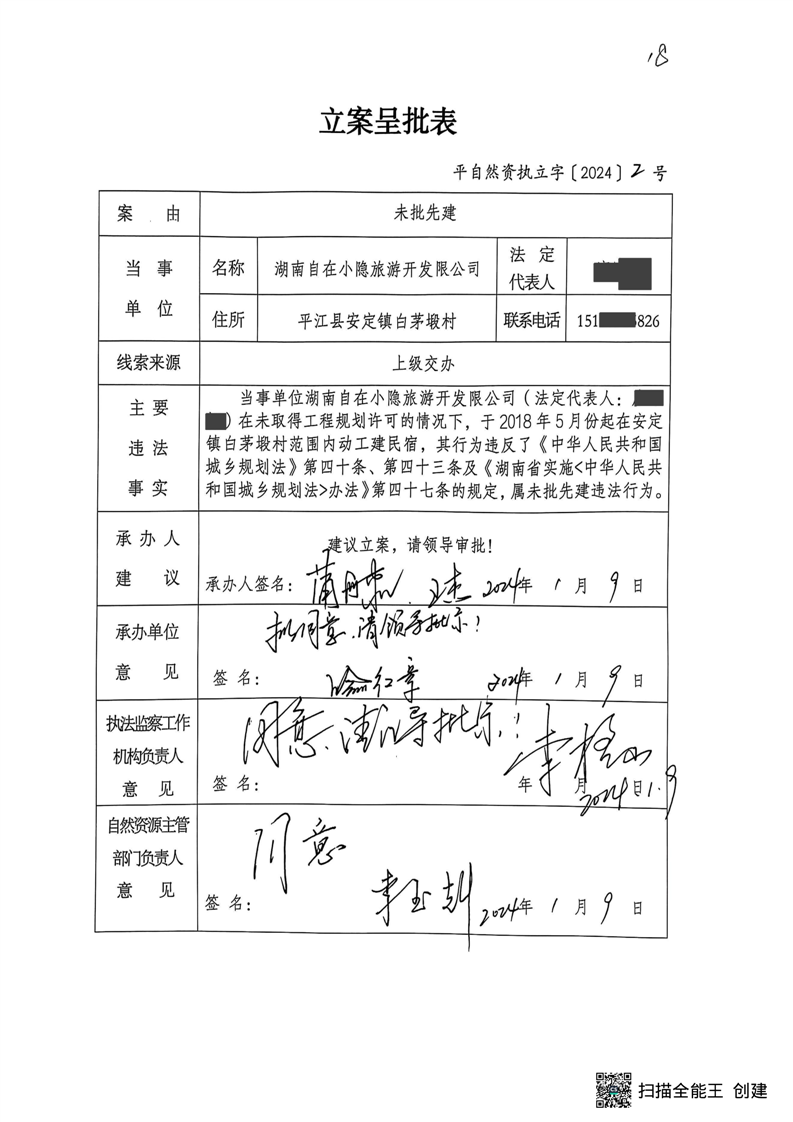 18
立案呈批表
平自然资执立字〔2024〕2号
案 由 未批先建
当 事 单 位 名称 湖南自在小隐旅游开发限公司 法 定 代表人
住所 平江县安定镇白茅塅村 联系电话 151 826
线索来源 上级交办
主 要 违 法 事 实
当事单位湖南自在小隐旅游开发限公司（法定代表人：
）在未取得工程规划许可的情况下，于 2018 年 5 月份起在安定
镇白茅塅村范围内动工建民宿，其行为违反了《中华人民共和国
城乡规划法》第四十条、第四十三条及《湖南省实施<中华人民共
和国城乡规划法>办法》第四十七条的规定，属未批先建违法行为。
承 办 人 建 议
建议立案，请领导审批！
承办人签名： 2024年 1 月 9 日
承办单位 意 见
拟同意，请领导批示！
签 名： 喻红章 2024年 1 月 9 日
执法监察工作 机构负责人 意 见
同意，请领导批示！
签 名： 年 月 日 2024.1.9
自然资源主管 部门负责人 意 见
同意
签 名： 2024年 1 月 9 日
扫描全能王 创建